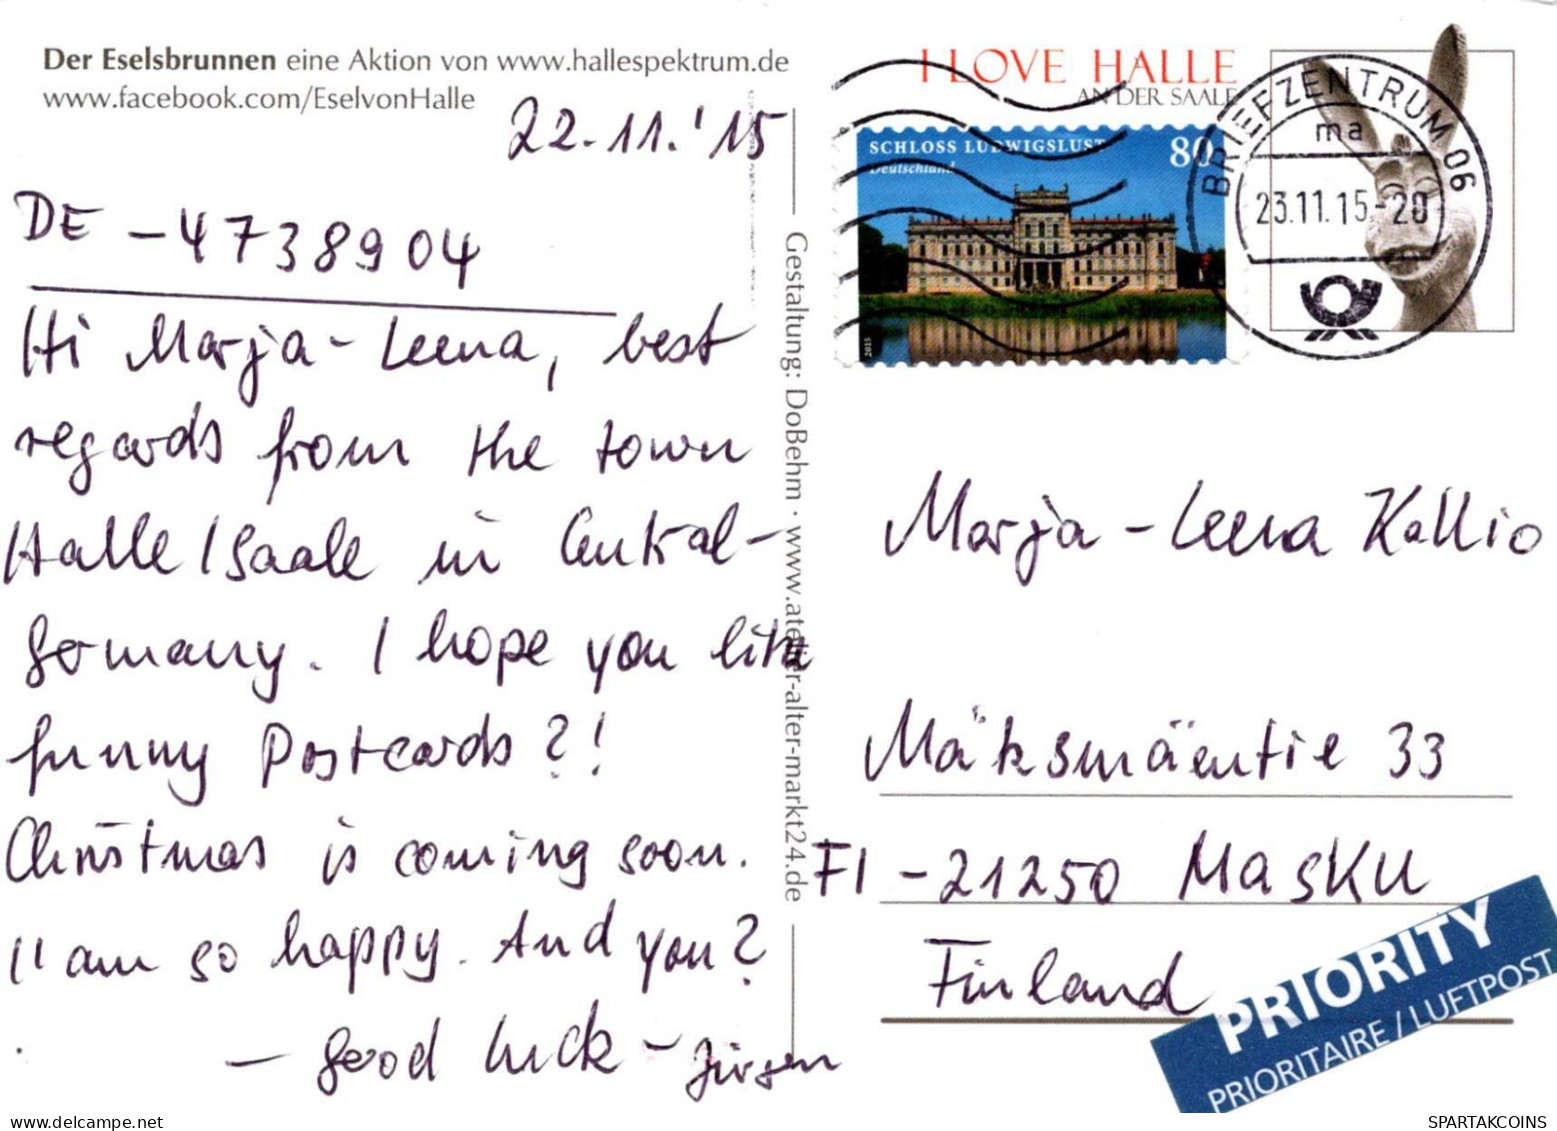 Der Eselsbrunnen eine Aktion von www.hallespektrum.de
www.facebook.com/EselvonHalle
22.11.'15
DE -4738904
Hi Marja-Leena, best
regards from the town
Halle/Saale in Central-
Germany. I hope you like
funny Postcards?!
Christmas is coming soon.
I'am so happy. And you?
- good luck - Jürgen
Gestaltung: DoBehm · www.atelier-alter-markt24.de
I LOVE HALLE
AN DER SAALE
SCHLOSS LUDWIGSLUST 80
Deutschland
2015
BRIEFZENTRUM 06
ma
23.11.15-20
Marja-Leena Kallio
Mäksmäentie 33
FI-21250 MASKU
Finland
PRIORITY
PRIORITAIRE / LUFTPOST
SPARTAKCOINS